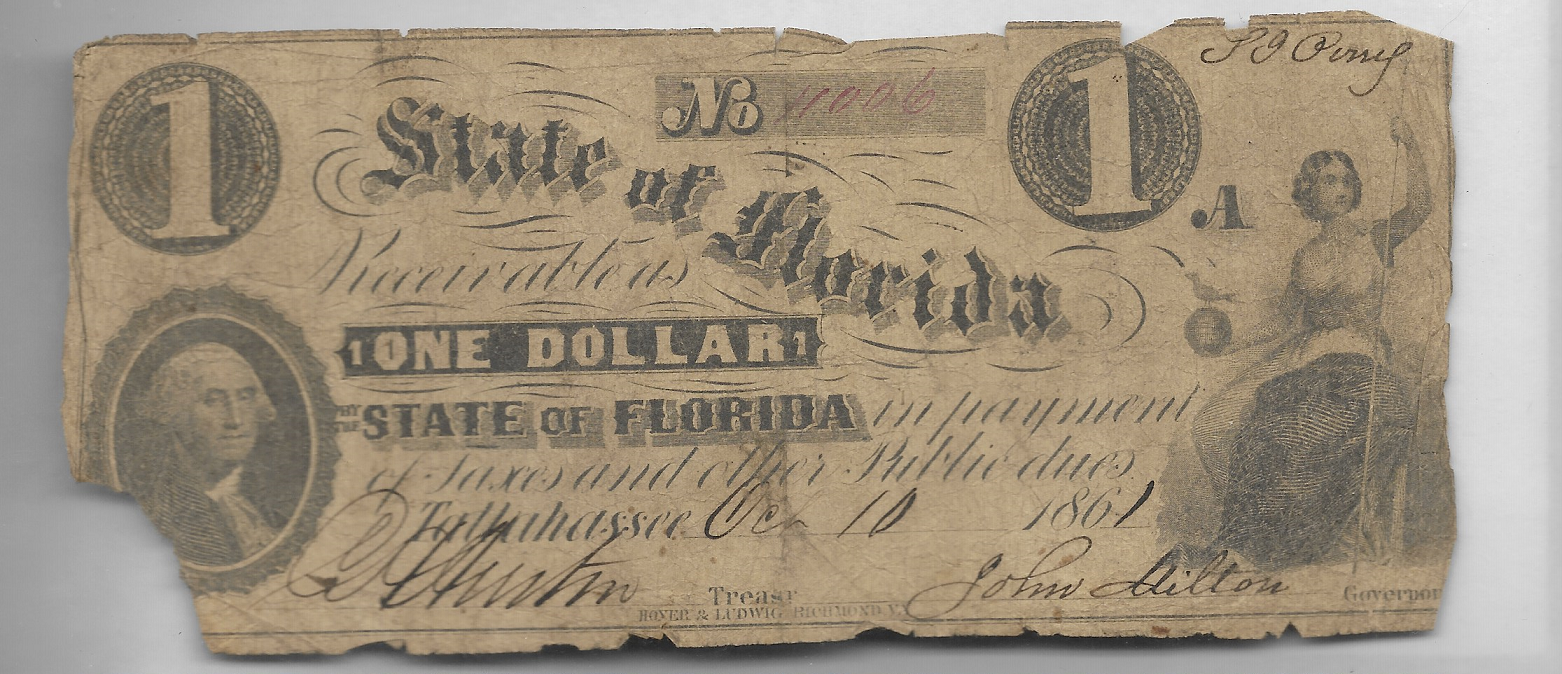 1 No 4006 1 P J Perry
State of Florida A
Receivable as
1 ONE DOLLAR 1
BY THE STATE OF FLORIDA in payment
of Taxes and other Public dues.
Tallahassee Oct 10 1861
Treasr John Milton Governor
HOYER & LUDWIG RICHMOND VA